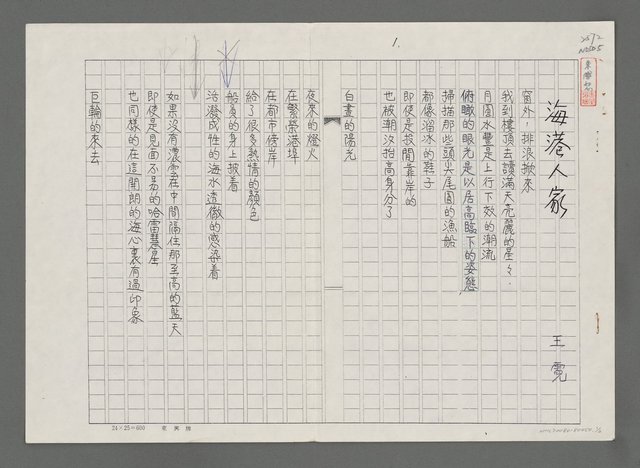 1.
海港人家
王霓
窗外，排浪掀來
我到樓頂去讀滿天亮麗的星々.
月圓水豐是上行下效的潮流
俯瞰的眼光是以居高臨下的姿態
掃描那些頭尖尾圓的漁船
都像溜冰的鞋子
即使是投閒靠岸的
也被潮汐抬高身分了
白晝的陽光
夜來的燈火
在繁榮港埠
在都市傍岸
給了很多熱情的顏色
船員的身上披着
活潑成性的海水透徹的感染着
如果沒有濃雲在中間隔住那至高的藍天
即使是見面不易的哈雷慧星
也同樣的在這開朗的海心裏有過印象
巨輪的來去
24×25=600